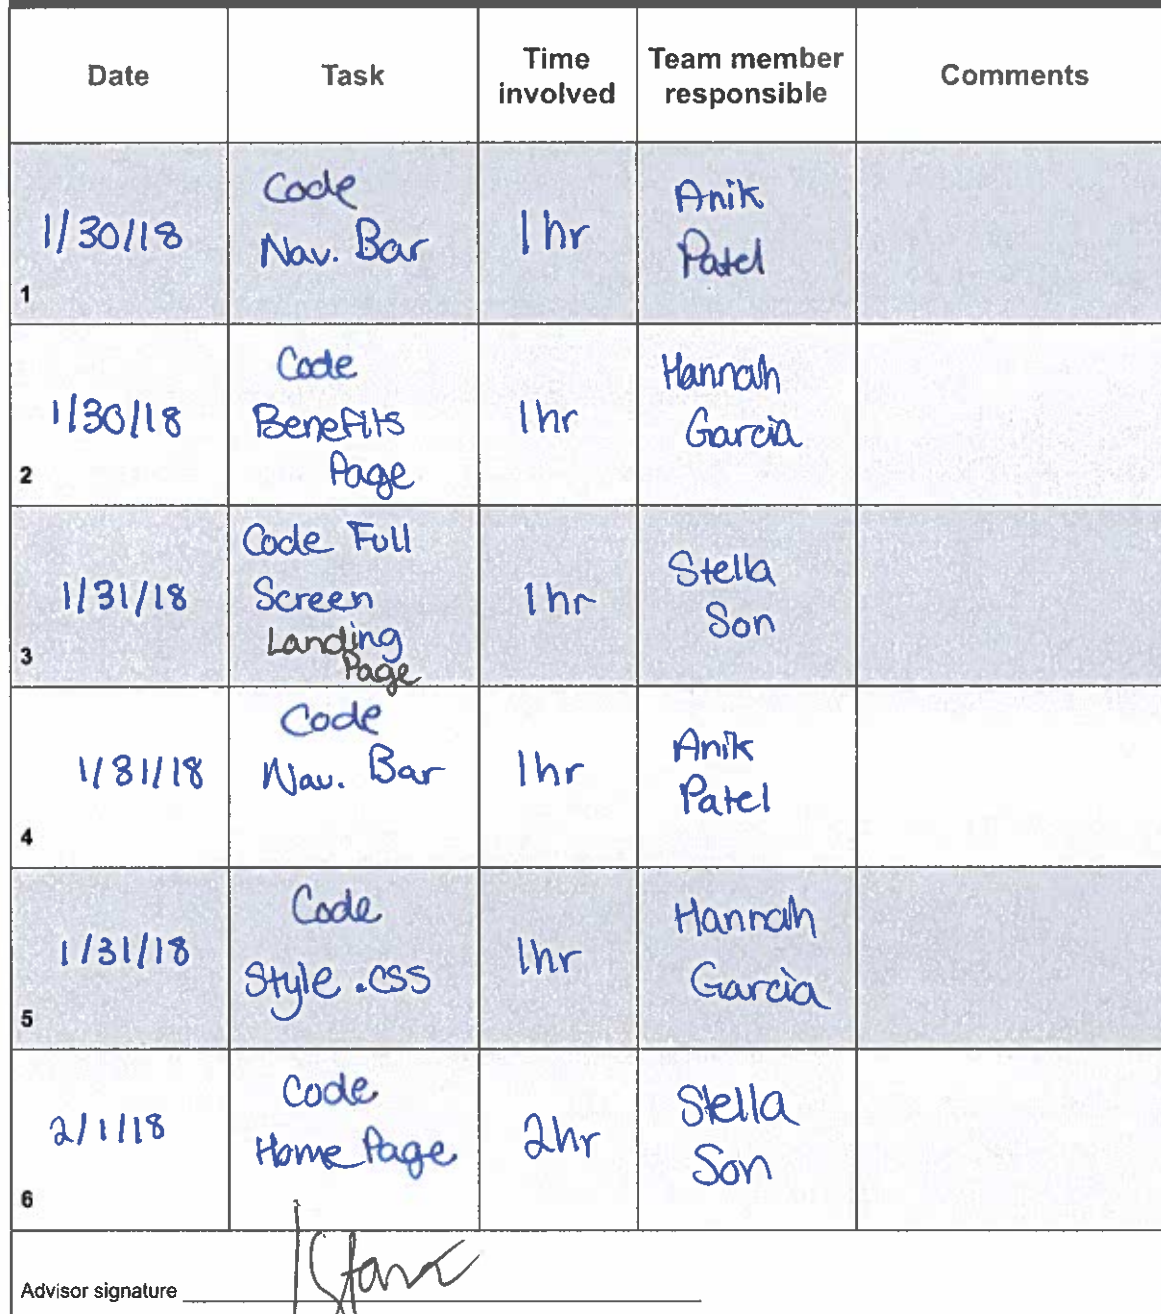 Date Task Time involved Team member responsible Comments
1/30/18
Code
Nav. Bar
1 hr
Anik
Patel
1
1/30/18
Code
Benefits
Page
1hr
Hannah
Garcia
2
1/31/18
Code Full
Screen
Landing
Page
1hr
Stella
Son
3
1/31/18
Code
Nav. Bar
1hr
Anik
Patel
4
1/31/18
Code
Style.css
1hr
Hannah
Garcia
5
2/1/18
Code
Home Page
2hr
Stella
Son
6
Advisor signature